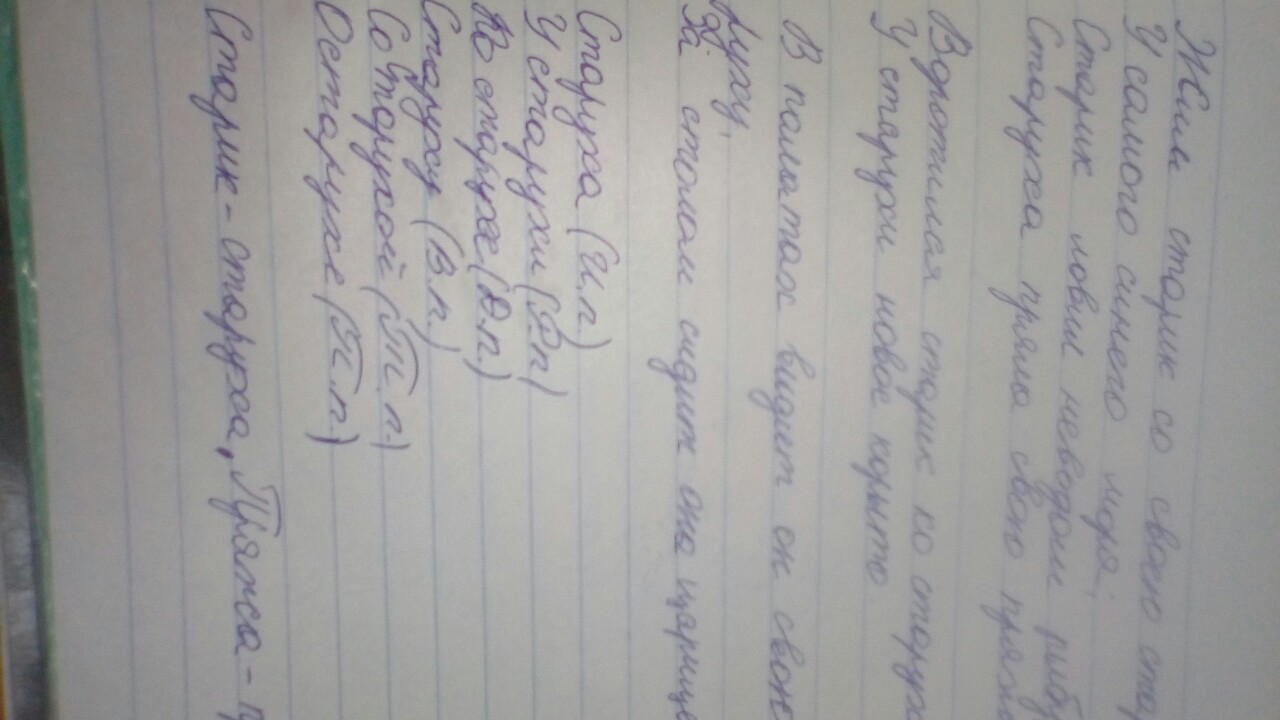 Жил старик со своею стар
У самого синего моря;
Старик ловил неводом рыбу
Старуха пряла свою пряжу
Воротился старик ко старухе
У старухи новое корыто.
В палатах видит он свою
руху,
За столом сидит она царице
Старуха (И.п)
У старухи (Р.п)
Ко старухе (Д.п)
Старуху (В.п.)
Со старухой (Т.п.)
О старухе (П.п)
Старик - старуха, Пряжа - п